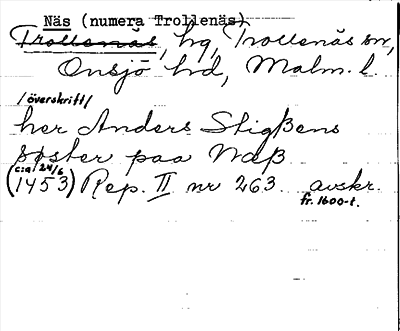 Näs (numera Trollenäs)
Trollenäs, hg, Trollenäs sn,
Onsjö hd, Malm. l.
/överskrift/
her Anders Stigßens
søster paa Naß
c:a 24/6
(1453) Rep. II nr 263. avskr.
fr. 1600-t.